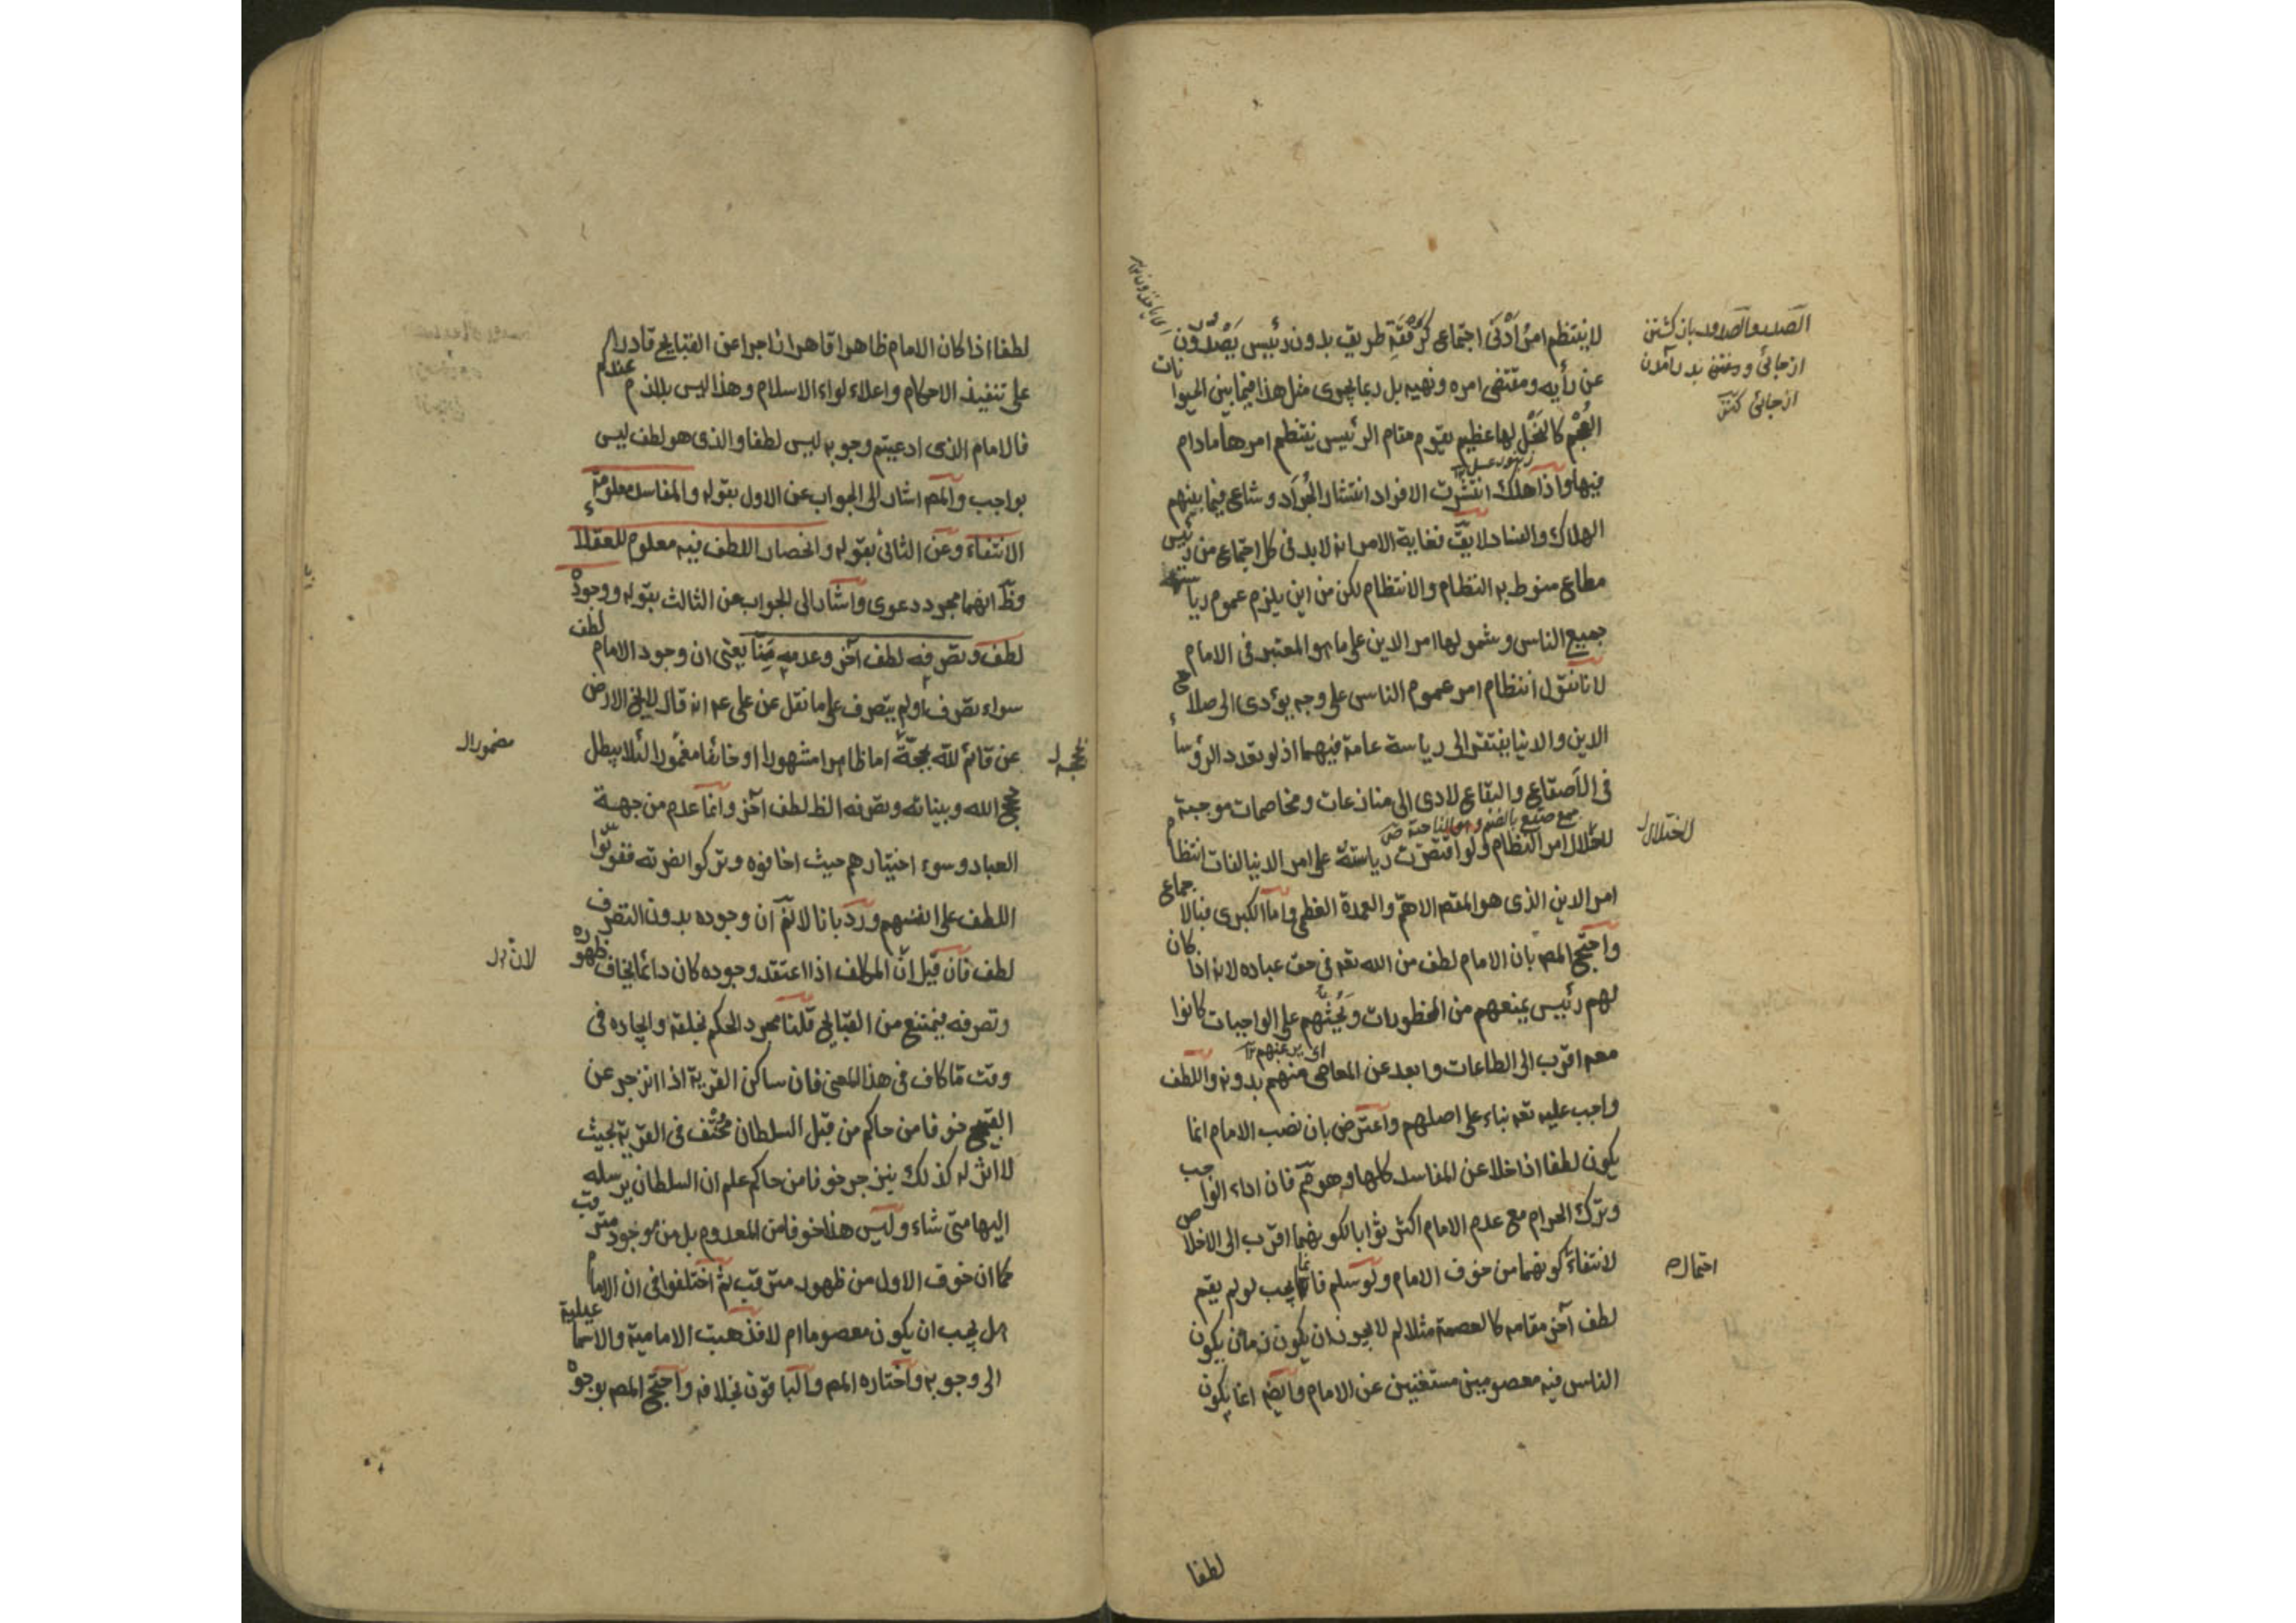 لا ينتظم امرُ اَدْنَى اجتماعٍ كرُفْقَةِ طريق بدون رئيس يَصْدُرُون
عن رأيه ومقتضى امره ونهيه بل ربما يجرى مثل هذا فيما بين الحيوانات
العُجْم كالنَّحْل لها عظيم يقوم مقام الرئيس ينتظم امرها مادام
زنبور عسل
فيها واذا هلك انتشرت الافراد انتشار الجَرَاد وشاع فيما بينهم
الهلاك والفساد لا يق فغاية الامر انه لابد فى كل اجتماع من رئيس
مطاع منوط به النظام والانتظام لكن من اين يلزم عموم رياسته
جميع الناس وشمولها امر الدين على ما هو المعتبر فى الامام
لانا نقول انتظام امر عموم الناس على وجه يؤدى الى صلاح
الدين والدنيا يفتقر الى رياسة عامة فيهما اذ لو تعدد الرؤساء
فى الاَصقاع والبقاع لادى الى منازعات ومخاصمات موجبة
جمع صقع بالضم وهو الناحية ص
لاختلال امر النظام ولو اقتصرت رياسته على امر الدنيا لفات انتظام
امر الدين الذى هو المقصد الاهم والعمدة العظمى واما الكبرى فبالاجماع
واحتج المص بان الامام لطف من الله تعه فى حق عباده لانه اذا كان
لهم رئيس يمنعهم من المحظورات ويَحُثُّهم على الواجبات كانوا
معه اقرب الى الطاعات وابعد عن المعاصى منهم بدونه واللطف
واجب عليه تعه بناء على اصلهم واعترض بان نصب الامام انما
يكون لطفا اذا خلا عن المفاسد كلها وهو مم فان اداء الواجب
وترك الحرام مع عدم الامام اكثر ثوابا لكونهما اقرب الى الاخلاص
لانتفاء كونهما من خوف الامام ولو سلم فانما يجب لو لم يقم
لطف آخر مقامه كالعصمة مثلا لم لا يجوز ان يكون زمان يكون
الناس فيه معصومين مستغنين عن الامام وايضه انما يكون
لطفا
الصدر والصدور باز كشتن
از جائى
از جائى
لاختلال ل
احتمال
لطفا اذا كان الامام ظاهرا قاهرا زاجرا عن القبايح قادرا
على تنفيذ الاحكام واعلاء لواء الاسلام وهذا ليس بلازم عندكم
فالامام الذى ادعيتم وجوبه ليس لطفا والذى هو لطف ليس
بواجب والمص اشار الى الجواب عن الاول بقوله والمفاسد معلومة
الانتفاء وعن الثانى بقوله وانحصار اللطف فيه معلوم للعقلاء
وظ انهما مجرد دعوى واشار الى الجواب عن الثالث بقوله ووجوده
لطف وتصرفه لطف آخر وعدمه مِنّا يعنى ان وجود الامام لطف
سواء تصرف اولم يتصرف على ما نقل عن على عم انه قال لا يخ الارض
عن قائم لله بحجة اما ظاهرا مشهورا او خائفا مغمورا لئلا يبطل
حجج الله وبيناته وتصرفه الظ لطف آخر وانما عدم من جهة
العباد وسوء اختيارهم حيث اخافوه وتركوا نصرته ففوّتوا
اللطف على انفسهم ورد بانا لانم ان وجوده بدون التصرف
لطف فان قيل انّ المكلف اذا اعتقد وجوده كان دائما يخاف ظهوره
وتصرفه فيمتنع من القبايح قلنا مجرد الحكم بخلقه وايجاده فى
وقت ما كاف فى هذا المعنى فان ساكن القرية اذا انزجر عن
القبيح خوفا من حاكم من قبل السلطان مُخْتَفٍ فى القرية بحيث
لا اثر له كذلك ينزجر خوفا من حاكم علم ان السلطان يرسله
اليها متى شاء وليس هذا خوفا من المعدوم بل من موجود مترقب
كما ان خوف الاول من ظهور مترقب ثم اختلفوا فى ان الامام
هل يجب ان يكون معصوما ام لا فذهبت الامامية والاسماعيلية
الى وجوبه واختاره المص والباقون بخلافه واحتج المص بوجوه